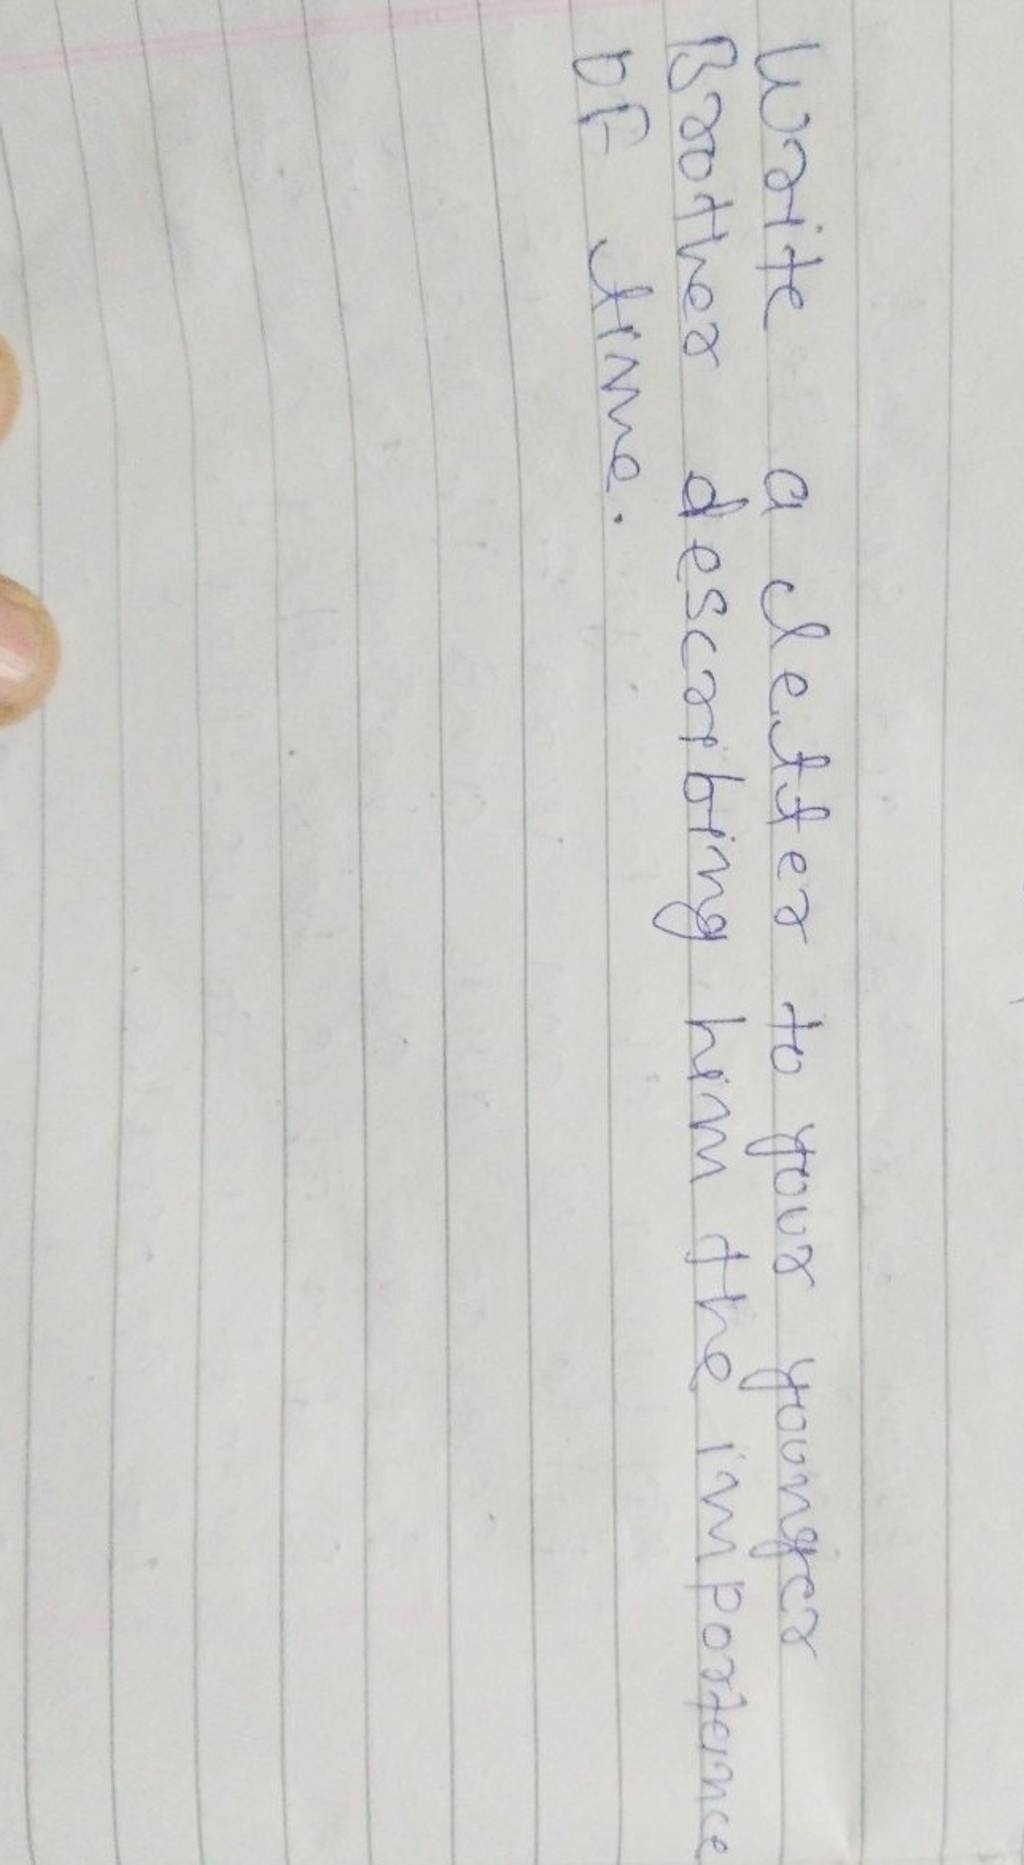 Write a letter to your younger
Brother describing him the importence
of time.